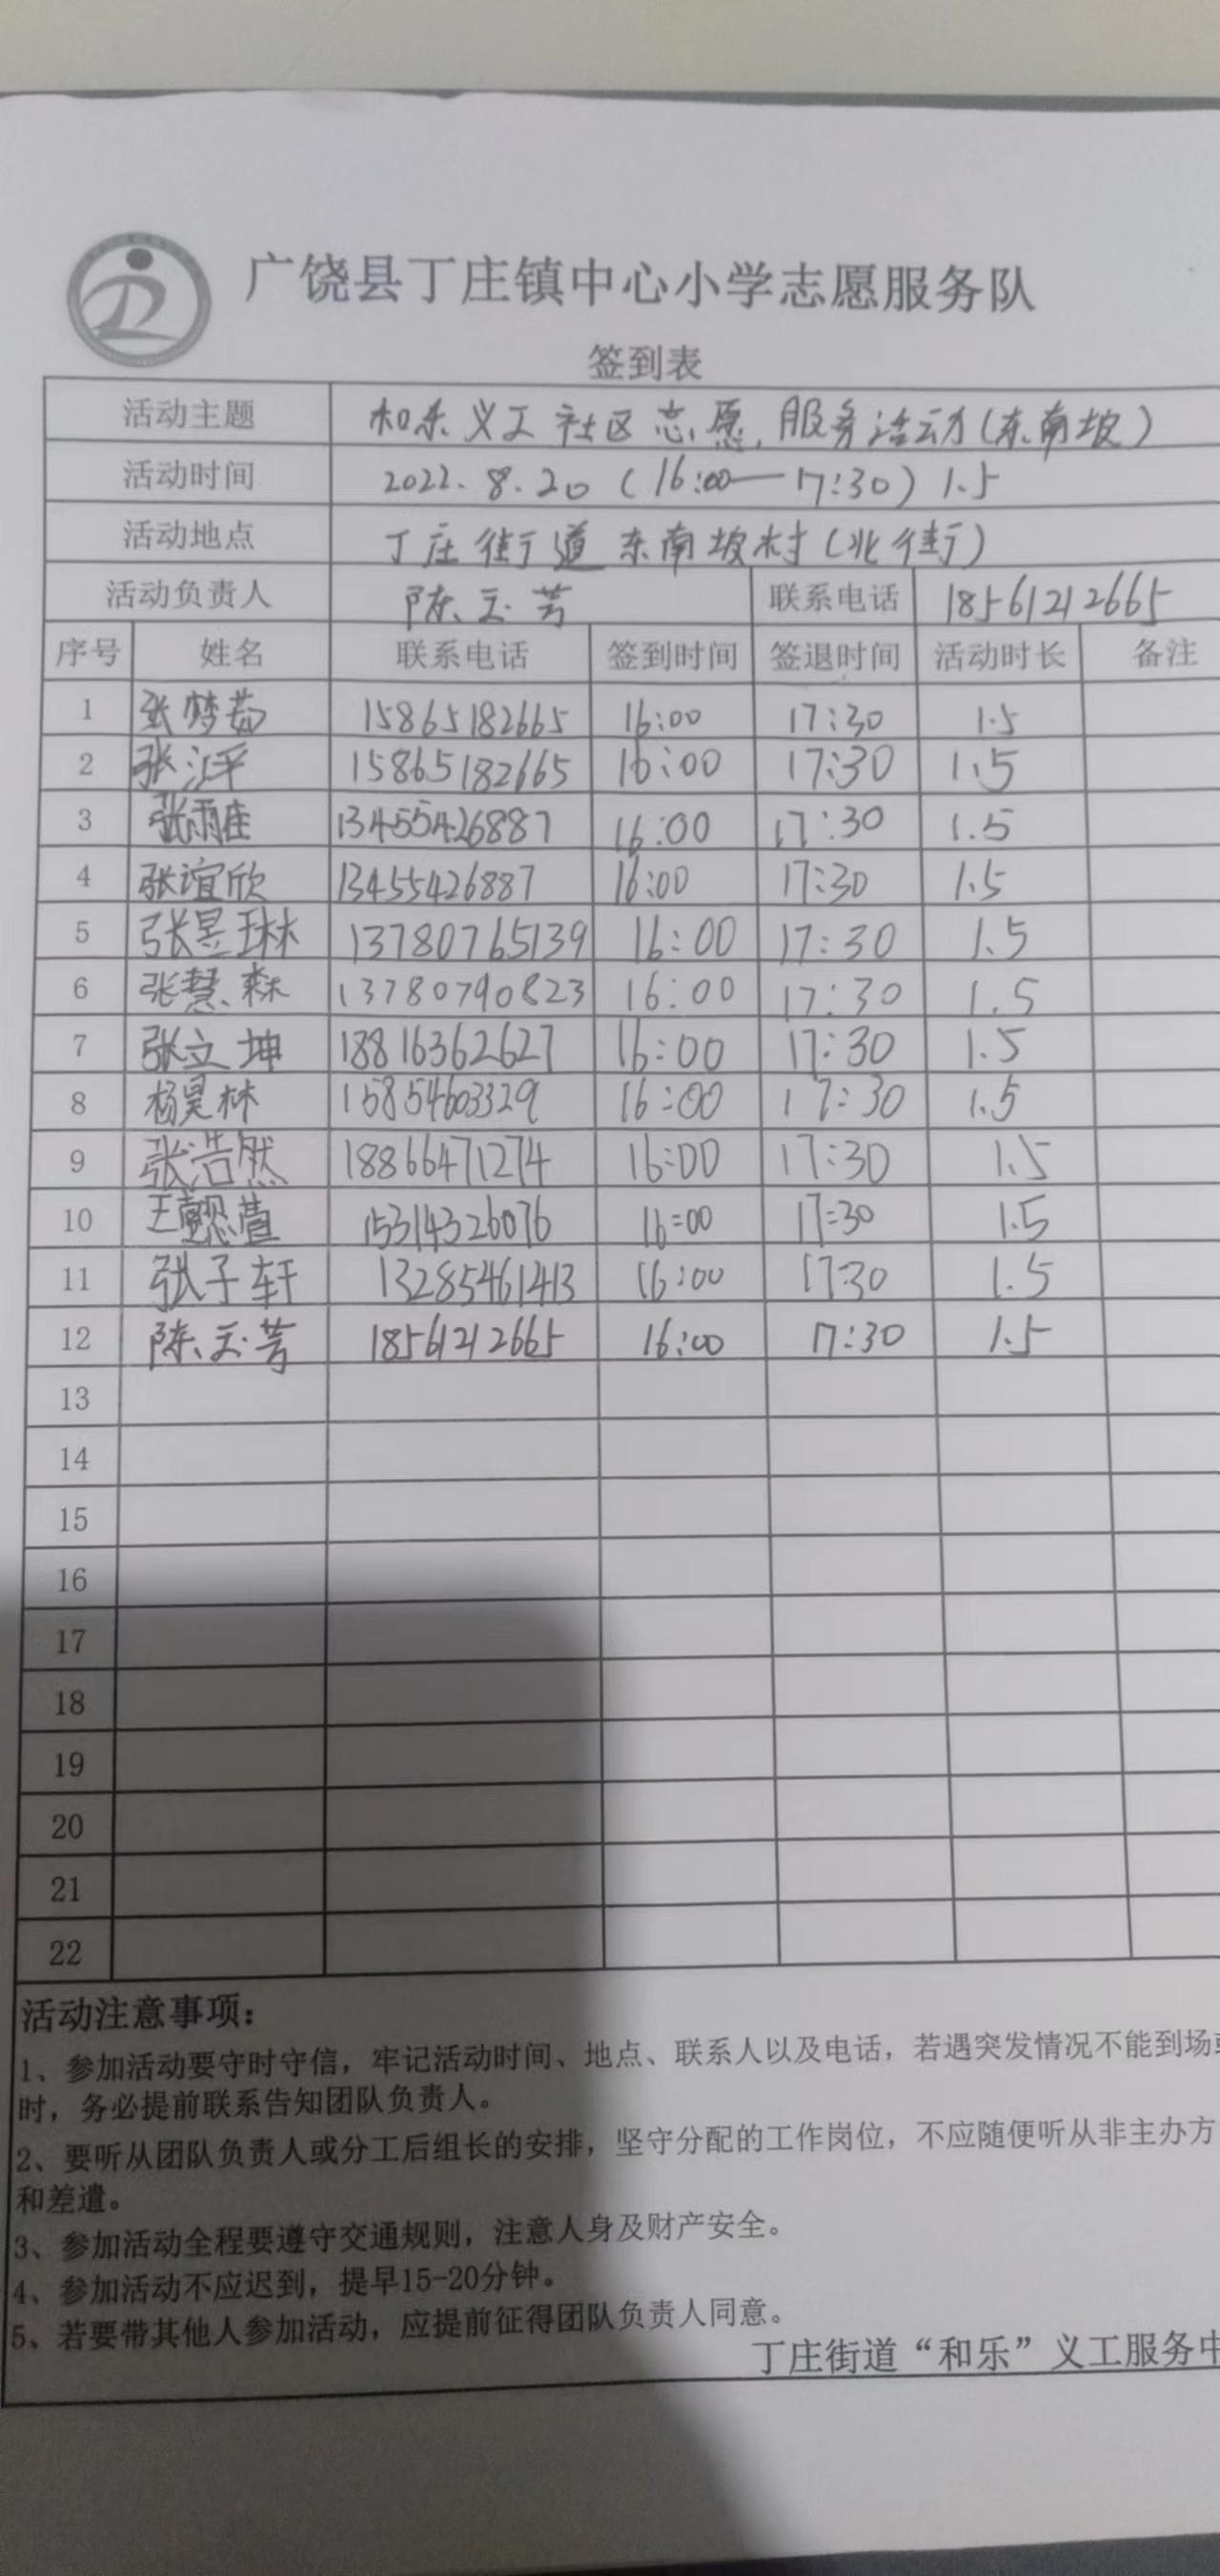 广饶县丁庄镇中心小学志愿服务队
签到表
活动主题 和乐义工社区志愿服务活动(东南坡)
活动时间 2022.8.20 (16:00—17:30) 1.5
活动地点 丁庄街道东南坡村(北街)
活动负责人 陈玉芳 联系电话 18561212665
序号 姓名 联系电话 签到时间 签退时间 活动时长 备注
1 张梦茹 15865182665 16:00 17:30 1.5
2 张 15865182665 16:00 17:30 1.5
3 张雨佳 13455426887 16:00 17:30 1.5
4 张谊欣 13455426887 16:00 17:30 1.5
5 张昱琳 13780765139 16:00 17:30 1.5
6 张慧森 13780790823 16:00 17:30 1.5
7 张立坤 18816362627 16:00 17:30 1.5
8 杨昊林 15854603329 16:00 17:30 1.5
9 张浩然 18866471274 16:00 17:30 1.5
10 王懿萱 15314326076 16:00 17:30 1.5
11 张子轩 13285461413 16:00 17:30 1.5
12 陈玉芳 18561212665 16:00 17:30 1.5
13
14
15
16
17
18
19
20
21
22
活动注意事项：
1、参加活动要守时守信，牢记活动时间、地点、联系人以及电话，若遇突发情况不能到场
时，务必提前联系告知团队负责人。
2、要听从团队负责人或分工后组长的安排，坚守分配的工作岗位，不应随便听从非主办方
和差遣。
3、参加活动全程要遵守交通规则，注意人身及财产安全。
4、参加活动不应迟到，提早15-20分钟。
5、若要带其他人参加活动，应提前征得团队负责人同意。
丁庄街道“和乐”义工服务中